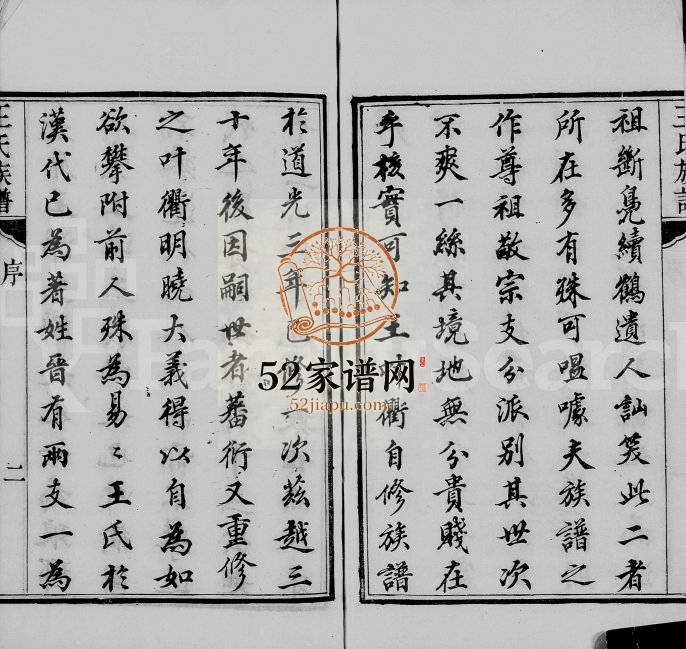 王氏族譜
祖斷鳧續鶴遺人訕笑此二者
所在多有殊可嗢噱夫族譜之
作尊祖敬宗支分派別其世次
不爽一絲其境地無分貴賤在
乎核實可知王叶衢自修族譜
於道光三年已修一次茲越三
十年後因嗣世者蕃衍又重修
之叶衢明曉大義得以自為如
欲攀附前人殊為易〻王氏於
漢代已為著姓晉有兩支一為
王氏族譜
序
二
52家谱网
52jiapu.com
FamilySearch